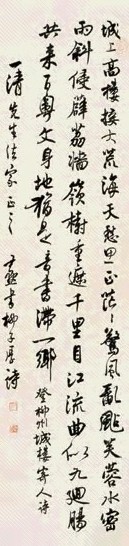 城上高樓接大荒海天愁思正茫々驚風亂颭芙蓉水密
雨斜侵薜荔牆嶺樹重遮千里目江流曲似九迴腸
共來百粵文身地猶是音書滯一鄉 登柳州城樓寄人詩
一清先生法家正之
書柳子厚詩